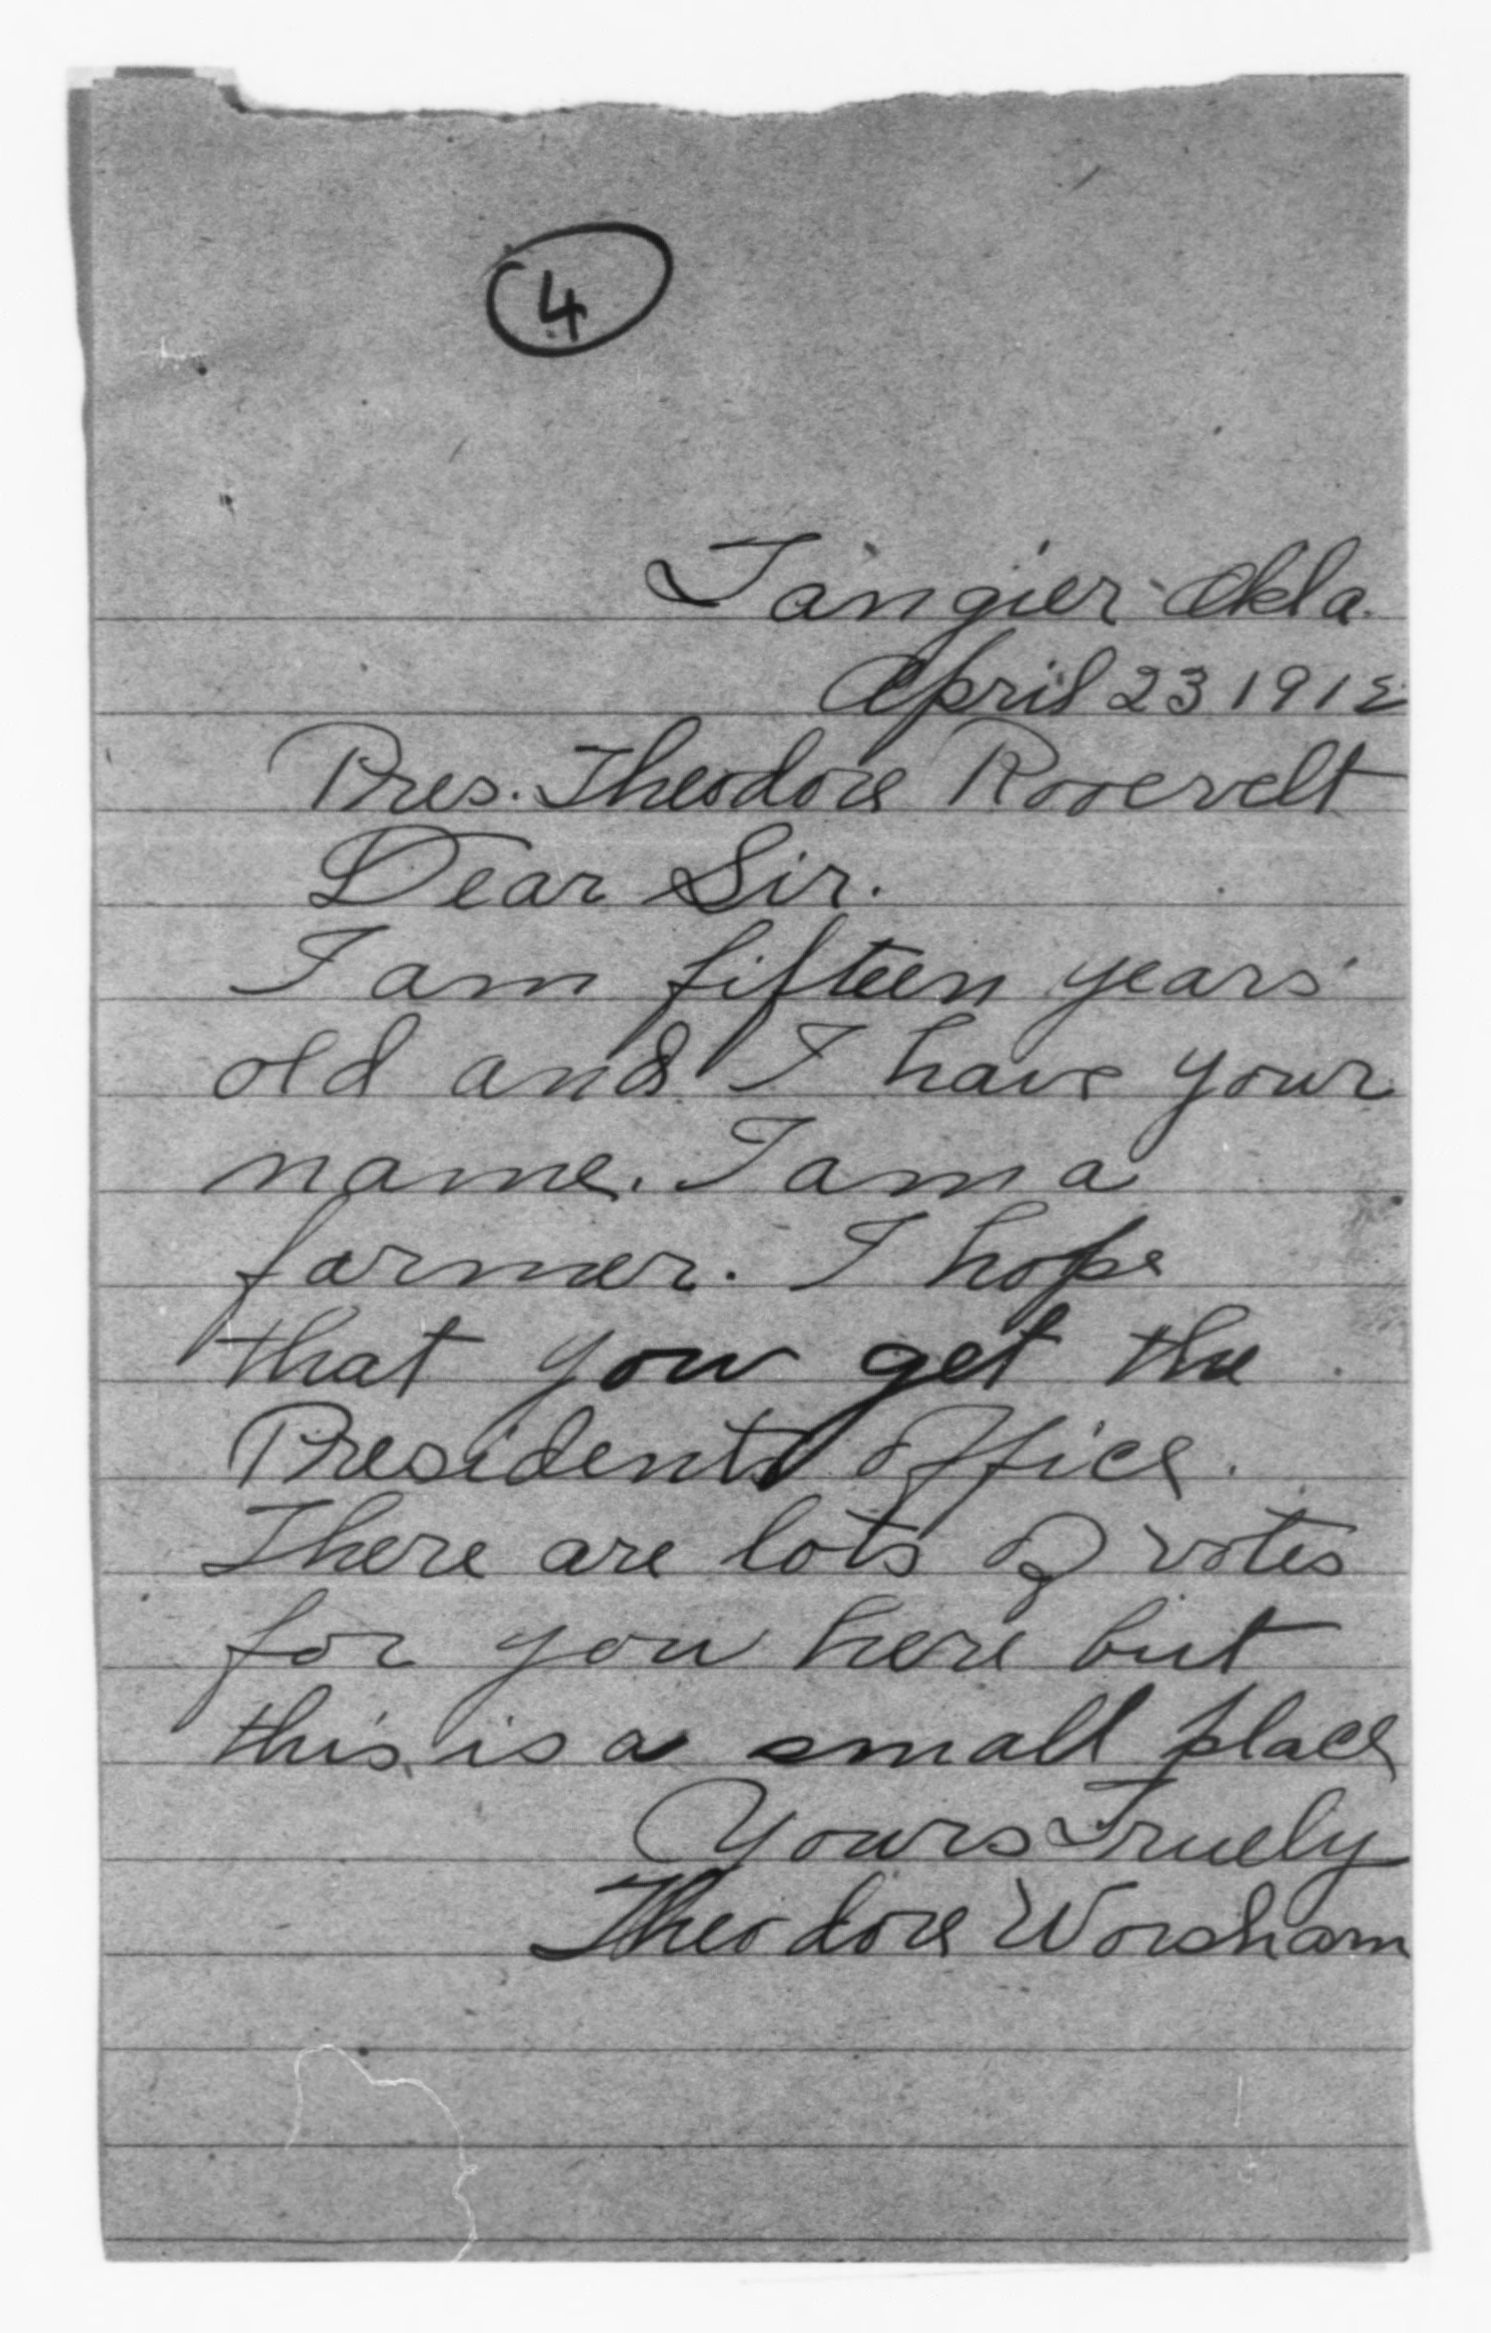 4
Tangier Okla.
April 23 1912
Pres. Theodore Roosevelt
Dear Sir.
I am fifteen years
old and I have your
name. I am a
farmer. I hope
that you get the
Presidents office.
There are lots of votes
for you here but
this is a small place
Yours Truely
Theodore Worsham